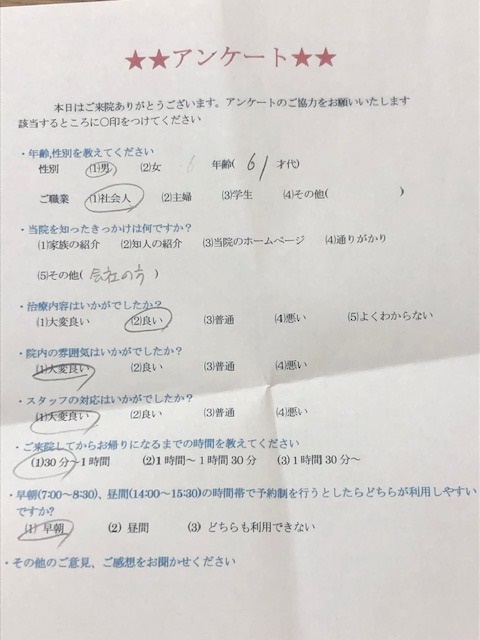 ★★アンケート★★
本日はご来院ありがとうございます。アンケートのご協力をお願いいたします
該当するところに〇印をつけてください
・年齢,性別を教えてください
性別 (1)男 (2)女 年齢( 61 才代)
ご職業 (1)社会人 (2)主婦 (3)学生 (4)その他( )
・当院を知ったきっかけは何ですか?
(1)家族の紹介 (2)知人の紹介 (3)当院のホームページ (4)通りがかり
(5)その他( 会社の方 )
・治療内容はいかがでしたか?
(1)大変良い (2)良い (3)普通 (4)悪い (5)よくわからない
・院内の雰囲気はいかがでしたか?
(1)大変良い (2)良い (3)普通 (4)悪い
・スタッフの対応はいかがでしたか?
(1)大変良い (2)良い (3)普通 (4)悪い
・ご来院してからお帰りになるまでの時間を教えてください
(1)30分～1時間 (2)1時間～1時間30分 (3)1時間30分～
・早朝(7:00～8:30)、昼間(14:00～15:30)の時間帯で予約制を行うとしたらどちらが利用しやすい
ですか?
(1) 早朝 (2) 昼間 (3) どちらも利用できない
・その他のご意見、ご感想をお聞かせください